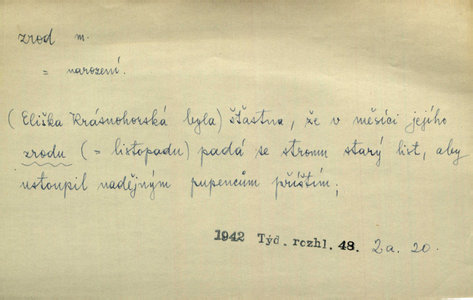 zrod m.
= narození.
(Eliška Krásnohorská byla) šťastna, že v měsíci jejího
zrodu (= listopadu) padá se stromu starý list, aby
ustoupil nadějným pupencům příštím;
1942 Týd. rozhl. 48. 2a. 20.